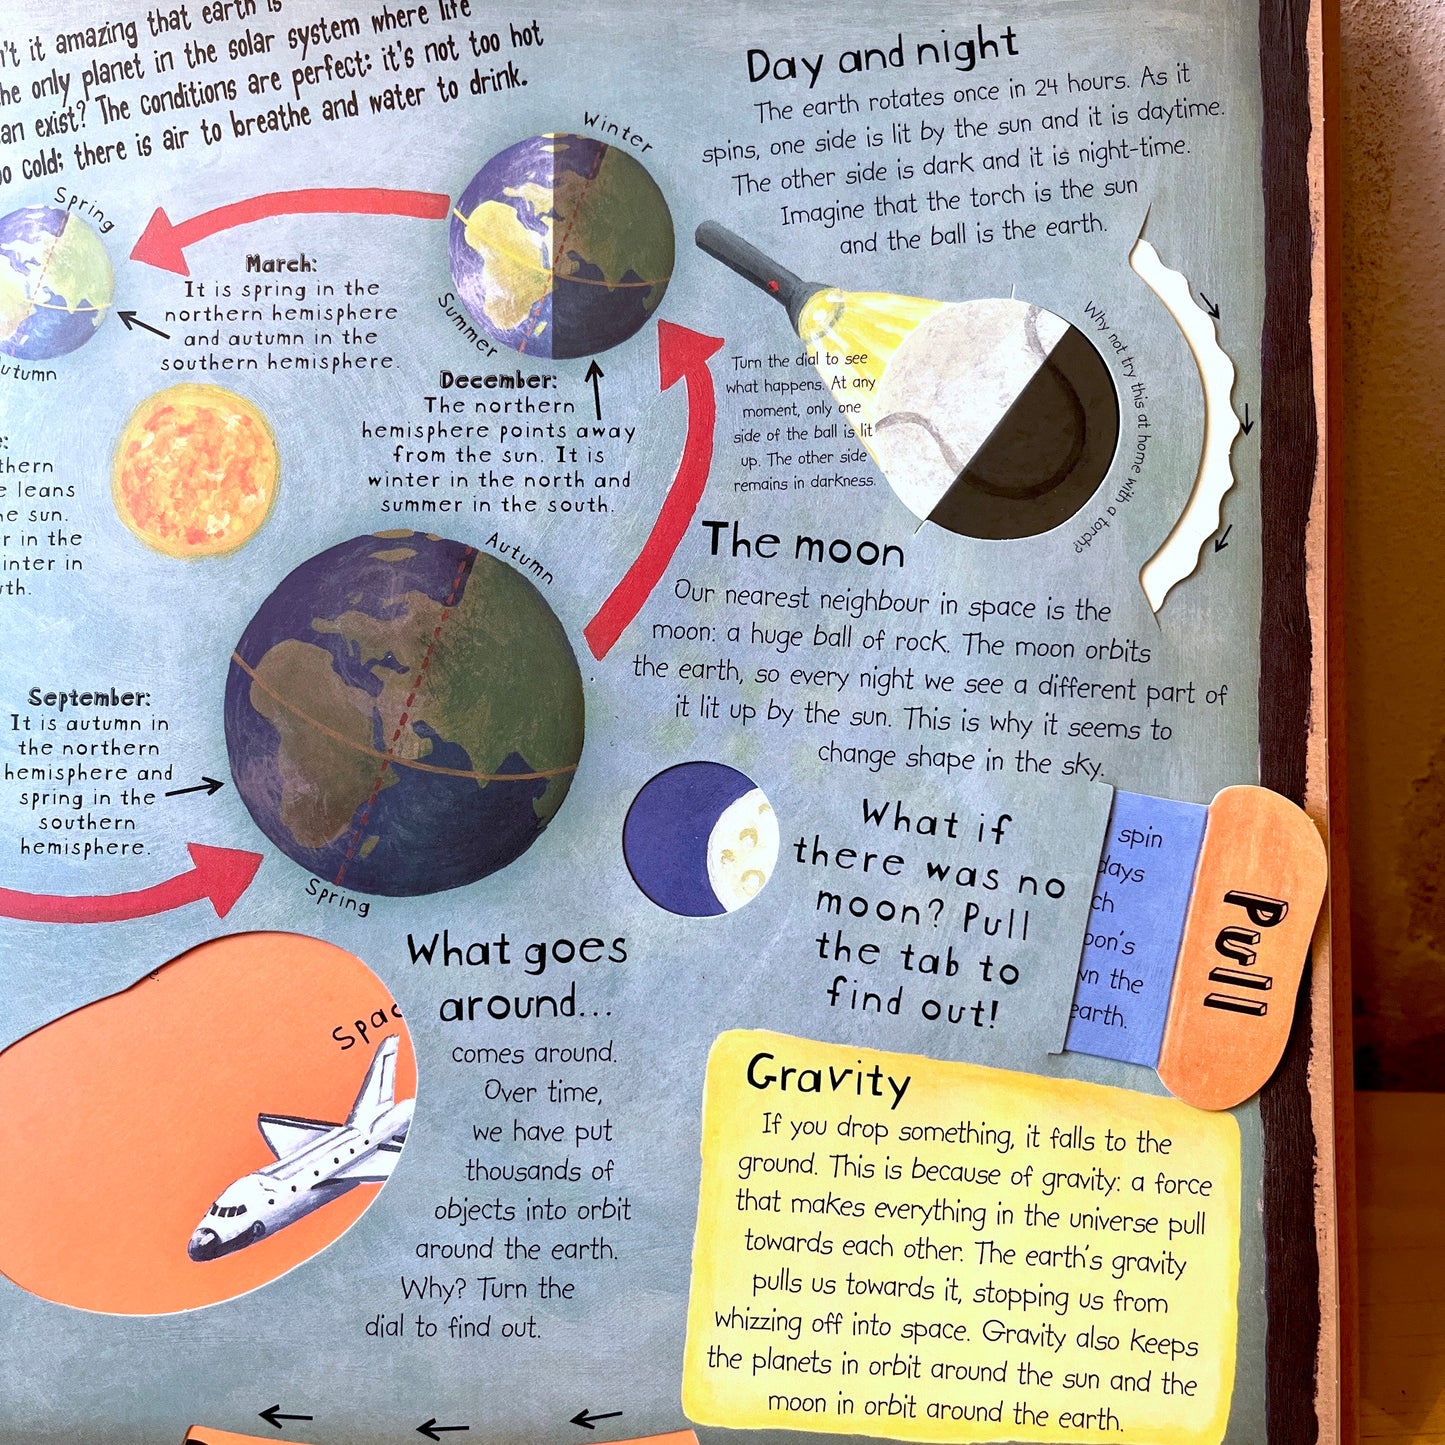 n't it amazing that earth is
he only planet in the solar system where life
an exist? The conditions are perfect: it's not too hot
oo cold; there is air to breathe and water to drink.
Spring
March:
It is spring in the
northern hemisphere
and autumn in the
southern hemisphere.
utumn
Winter
Summer
December:
The northern
hemisphere points away
from the sun. It is
winter in the north and
summer in the south.
:
thern
e leans
he sun.
r in the
inter in
th.
Autumn
Spring
September:
It is autumn in
the northern
hemisphere and
spring in the
southern
hemisphere.
Day and night
The earth rotates once in 24 hours. As it
spins, one side is lit by the sun and it is daytime.
The other side is dark and it is night-time.
Imagine that the torch is the sun
and the ball is the earth.
Turn the dial to see
what happens. At any
moment, only one
side of the ball is lit
up. The other side
remains in darkness.
Why not try this at home with a torch?
The moon
Our nearest neighbour in space is the
moon: a huge ball of rock. The moon orbits
the earth, so every night we see a different part of
it lit up by the sun. This is why it seems to
change shape in the sky.
What if
there was no
moon? Pull
the tab to
find out!
spin
days
ch
oon's
wn the
earth.
Pull
What goes
around...
comes around.
Over time,
we have put
thousands of
objects into orbit
around the earth.
Why? Turn the
dial to find out.
Spac
Gravity
If you drop something, it falls to the
ground. This is because of gravity: a force
that makes everything in the universe pull
towards each other. The earth's gravity
pulls us towards it, stopping us from
whizzing off into space. Gravity also keeps
the planets in orbit around the sun and the
moon in orbit around the earth.